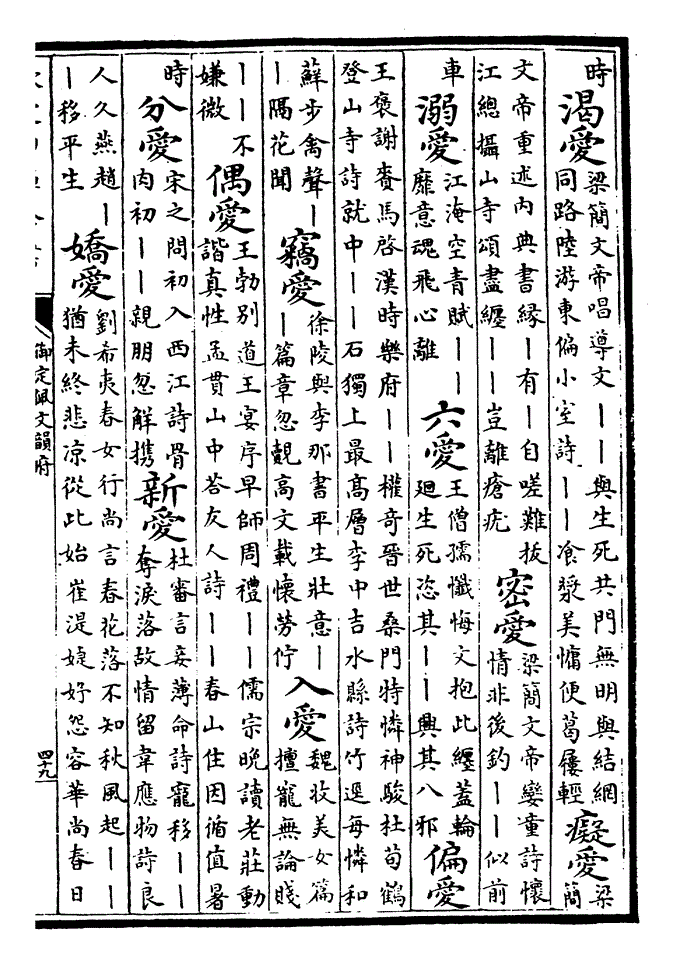 時渴愛梁簡文帝唱導文丨丨與生死共門無明與結網
同路陸游東偏小室詩丨丨飡漿美慵便葛屨輕癡愛梁
簡
文帝重述内典書縁丨有丨自嗟難拔
江總攝山寺頌盡纏丨丨豈離瘡疣密愛梁簡文帝孌童詩懷
情非後釣丨丨似前
車溺愛江淹空青賦丨丨
靡意魂飛心離六愛王僧孺懺悔文抱此纒蓋輪
廻生死恣其丨丨興其八邪偏愛
王褒謝賚馬啓漢時樂府丨丨權奇晉世桑門特憐神駿杜荀鶴
登山寺詩就中丨丨石獨上最髙層李中吉水縣詩竹逕每憐和
蘚步禽聲丨
丨隔花聞竊愛徐陵與李那書平生壯意丨
丨篇章忽覿髙文載懷勞佇入愛魏收美女篇
擅寵無論賤
丨丨不
嫌微偶愛王勃别道王宴序早師周禮丨丨儒宗晚讀老莊動
諧真性孟貫山中荅友人詩丨丨春山住因循值暑
時分愛宋之問初入西江詩骨
肉初丨丨親朋忽解攜新愛杜審言妾薄命詩寵移丨丨
奪淚落故情留韋應物詩良
人久燕趙丨
丨移平生嬌愛劉希夷春女行尚言春花落不知秋風起丨丨
猶未終悲凉從此始崔湜婕妤怨容華尚春日
御定佩文韻府
四十九